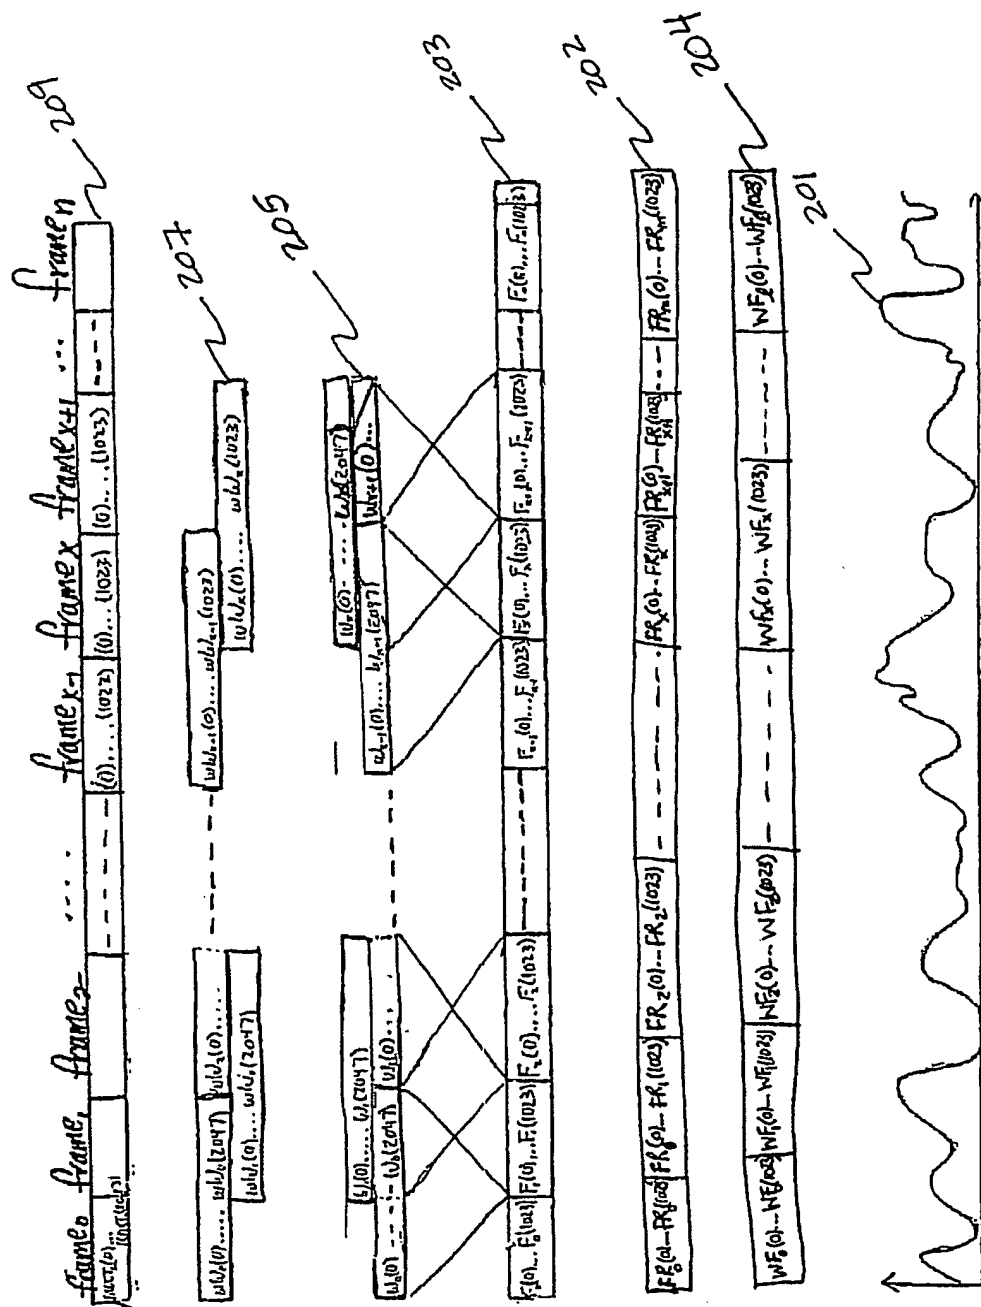 frame₀ frame₁ frame₂ .... frameₓ₋₁ frameₓ frameₓ₊₁ ... frameₙ
(0)....(1023) (0)...(1023) (0)...(1023)
209
WW₀(0)..... WW₀(2047) WW₂(0).....
WW₁(0)....WW₁(2047)
WWₓ₋₁(0)....WWₓ₋₁(1023)
WWₓ(0).... WWₓ(1023)
207
W₁(0)..... W₁(2047)
W₀(0) ----- W₀(2047) W₂(0)...
Wₓ(0) ..... Wₓ(2047)
Wₓ₋₁(0).... Wₓ₋₁(2047) Wₓ₊₁(0)...
205
F₀(0)...F₀(1023) F₁(0)....F₁(1023) F₂(0)....F₂(1023) Fₓ₋₁(0)...Fₓ₋₁(1023) Fₓ(0)...Fₓ(1023) Fₓ₊₁(0)...Fₓ₊₁(1023)
203
FR₀(0)...FR₀(1023) FR₁(0)...FR₁(1023) FR₂(0)...FR₂(1023) FRₓ(0)...FRₓ(1023) FRₓ₊₁(0)...FRₓ₊₁(1023) FRₘ(0)...FRₘ(1023)
202
WF₀(0)...WF₀(1023) WF₁(0)...WF₁(1023) WF₂(0)...WF₂(1023) WFₓ(0)...WFₓ(1023) WFₗ(0)...WFₗ(1023)
204
201